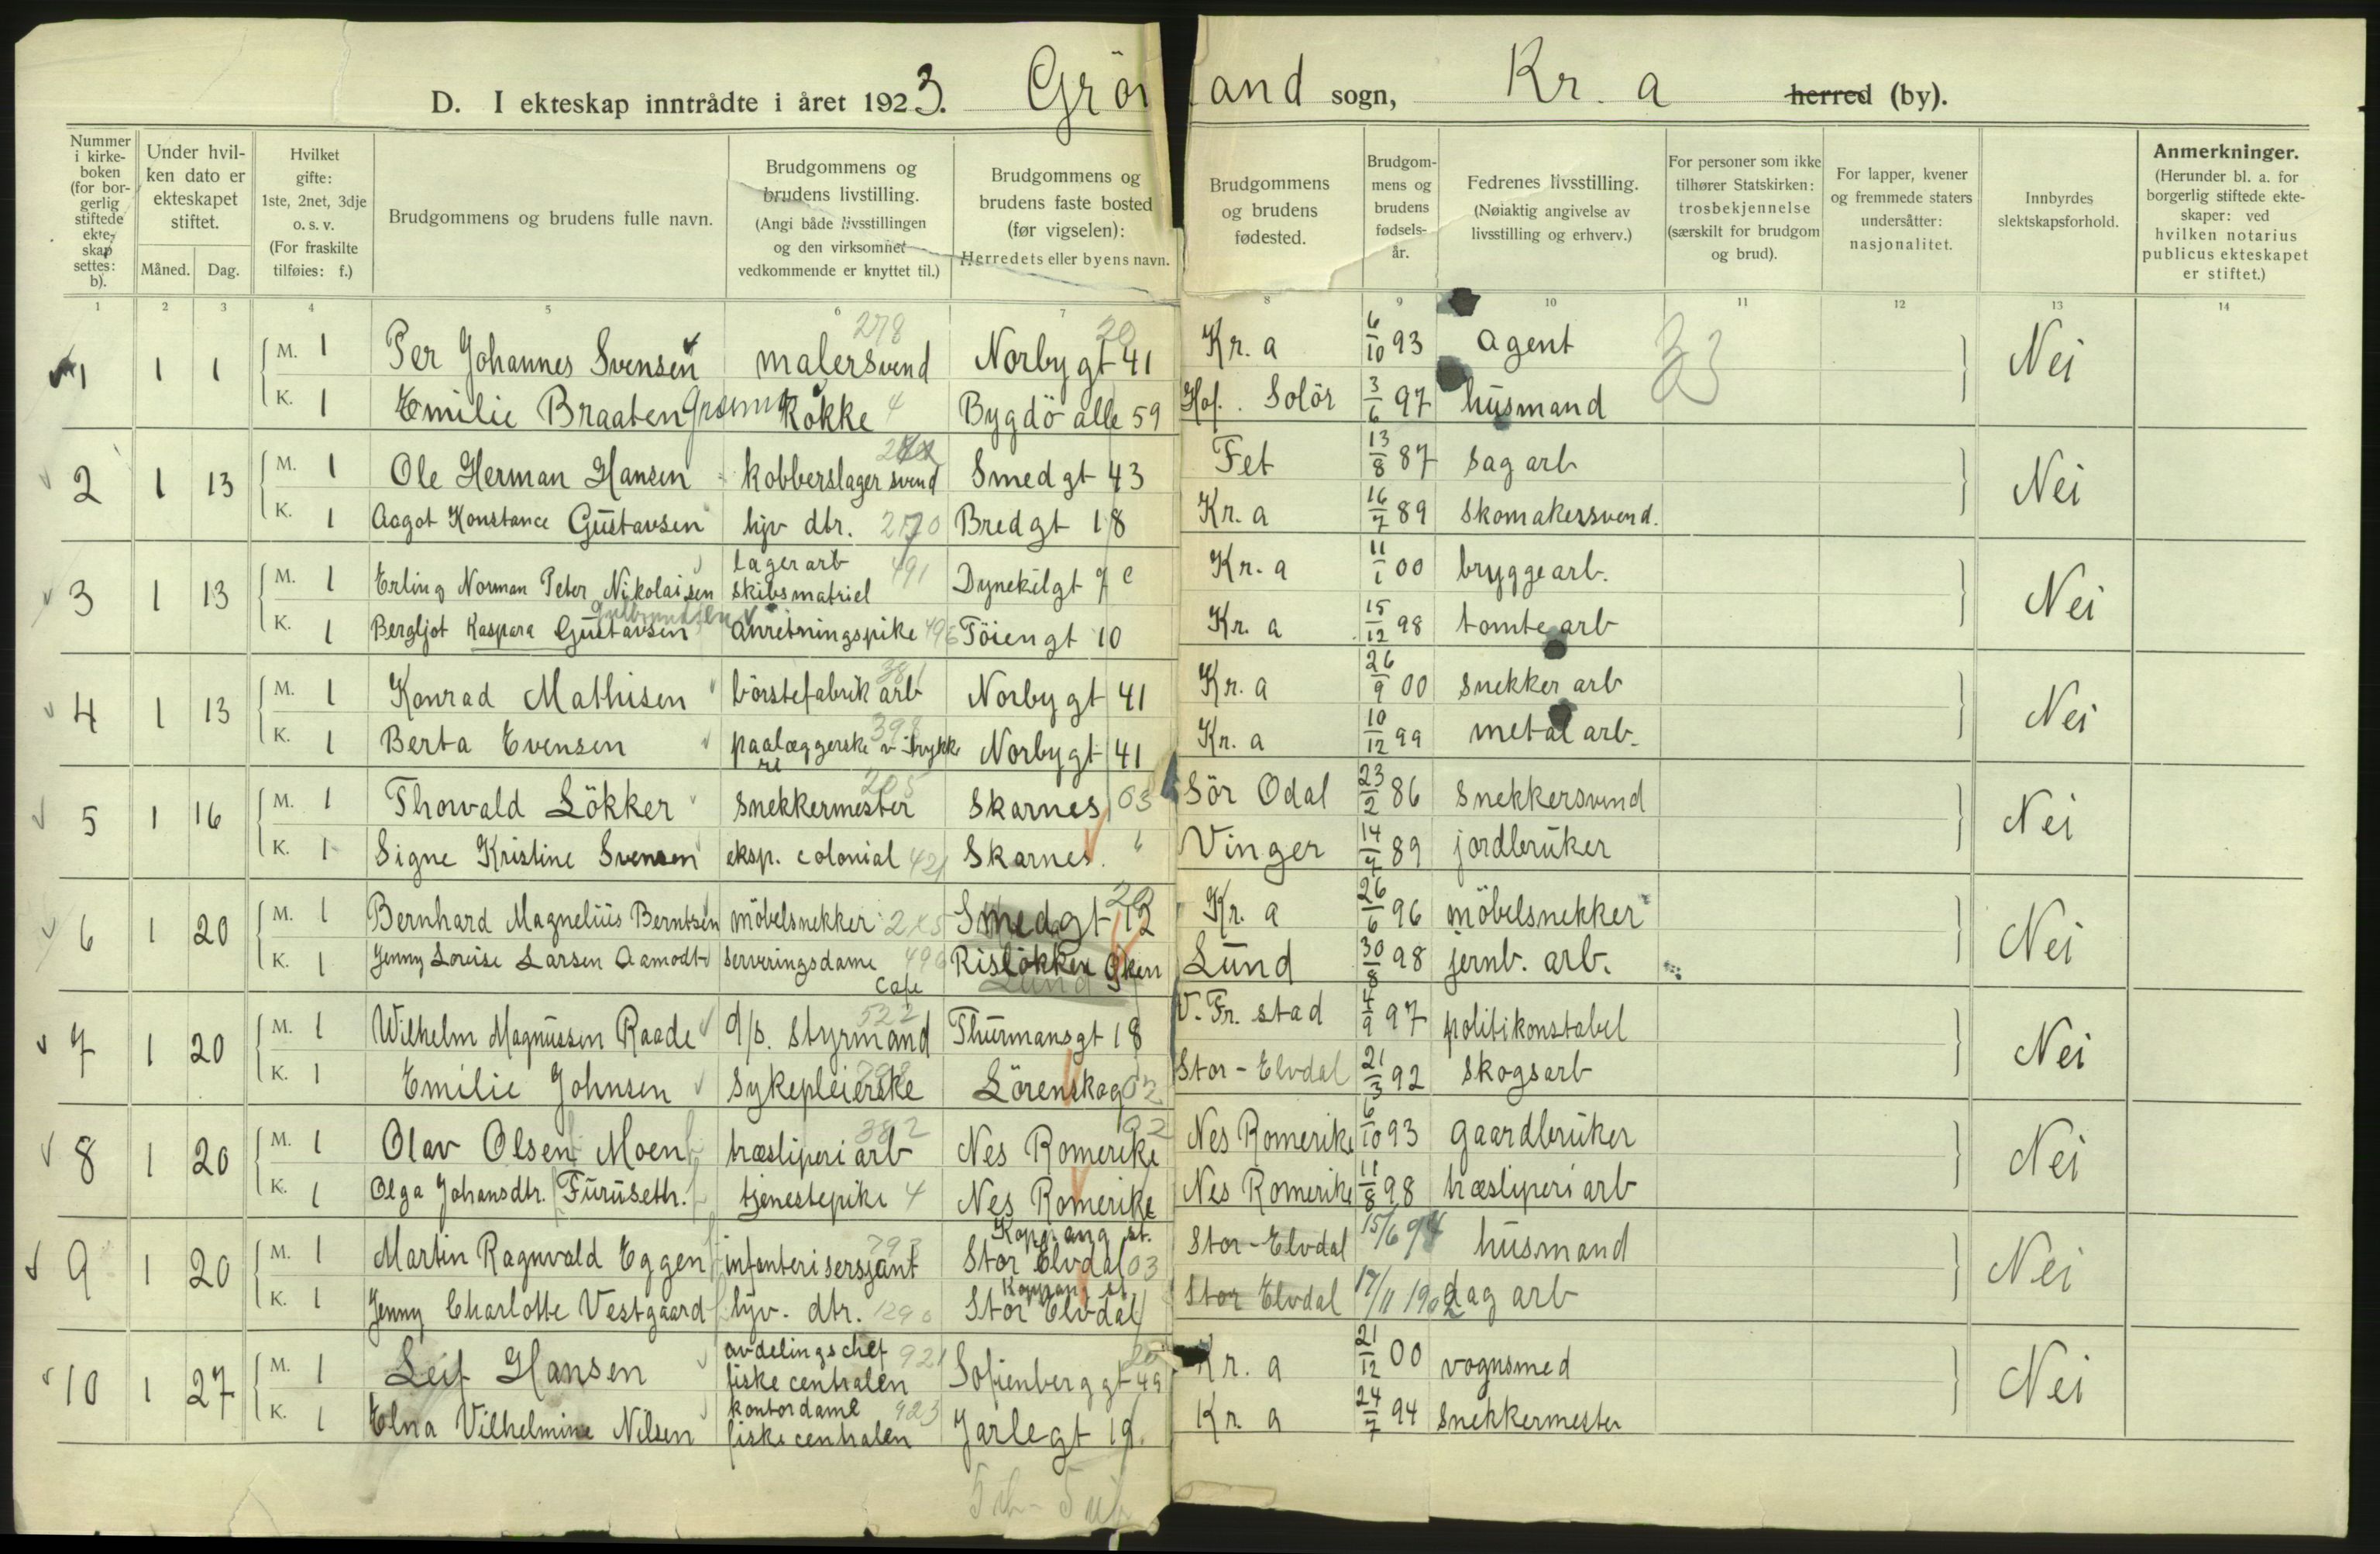 D. I ekteskap inntrådte i året 1923. Grön land sogn, Kr. a herred (by).
Nummer i kirke-boken (for bor-gerlig stiftede ekte-skap settes: b).
Under hvil-ken dato er ekteskapet stiftet.
Måned. Dag.
Hvilket gifte: 1ste, 2net, 3dje o. s. v. (For fraskilte tilføies: f.)
Brudgommens og brudens fulle navn.
Brudgommens og brudens livstilling. (Angi både livsstillingen og den virksomhet vedkommende er knyttet til.)
Brudgommens og brudens faste bosted (før vigselen): Herredets eller byens navn.
Brudgommens og brudens fødested.
Brudgom-mens og brudens fødsels-år.
Fedrenes livsstilling. (Nøiaktig angivelse av livsstilling og erhverv.)
For personer som ikke tilhører Statskirken: trosbekjennelse (særskilt for brudgom og brud).
For lapper, kvener og fremmede staters undersåtter: nasjonalitet.
Innbyrdes slektskapsforhold.
Anmerkninger. (Herunder bl. a. for borgerlig stiftede ekte-skaper: ved hvilken notarius publicus ekteskapet er stiftet.)
1 2 3 4 5 6 7 8 9 10 11 12 13 14
278 20
1 1 1 M. 1 Per Johannes Svensen malersvend Norbygt 41 Kr. a 6/10 93 agent Nei
K. 1 Emilie Braaten Kokke 4 Bygdö alle 59 Hof. Solör 3/6 97 husmand
2 1 13 M. 1 Ole Herman Hansen kobberslager svend Smedgt 43 Fet 13/8 87 sagarb Nei
K. 1 Aagot Konstance Gustavsen hjv dtr. Bredgt 18 Kr. a 16/7 89 skomakersvend.
3 1 13 M. 1 Erling Norman Peter Nikolaisen lagerarb skibsmatriel 491 Dynekilgt 7 c Kr. a 11/1 00 bryggearb. Nei
Gulbrandsen
K. 1 Bergljot Kaspara Gustavsen anretningspike 496 Töiengt 10 Kr. a 15/12 98 tomtearb
4 1 13 M. 1 Konrad Mathisen börstefabrik arb 381 Norbygt 41 Kr. a 26/9 00 snekker arb Nei
K. 1 Berta Evensen paalæggerske v trykkeri 398 Norbygt 41 Kr. a 10/12 99 metal arb.
5 1 16 M. 1 Thorvald Lökker snekkermester 205 Skarnes 03 Sör Odal 23/2 86 snekkersvend Nei
K. 1 Signe Kristine Svensen eksp. colonial 421 Skarnes. " Vinger 14/9 89 jordbruker
6 1 20 M. 1 Bernhard Magnelius Berntsen möbelsnekker Smedgt 12 20 Kr. a 26/6 96 möbelsnekker Nei
K. 1 Jenny Lovise Larsen Aamodt serveringsdame Cafe 496 Rislökken Lund 30/8 98 jernb. arb.
7 1 20 M. 1 Wilhelm Magnussen Raade d/s. styrmand 522 Thurmansgt 18 V. Fr. stad 4/9 97 politikonstabel Nei
K. 1 Emilie Johnsen Sykepleierske Lörenskog 02 Stor-Elvdal 21/3 92 skogsarb
8 1 20 M. 1 Olav Olsen Moen træsliperi arb 382 Nes Romerike 02 Nes Romerike 6/10 93 gaardbruker Nei
K. 1 Olga Johansdtr. Furuseth. tjenestepike 4 Nes Romerike Nes Romerike 11/8 98 træsliperi arb
9 1 20 M. 1 Martin Ragnvald Eggen infanterisersjant Koppang st. Stor Elvdal 03 Stor-Elvdal 15/6 94 husmand Nei
K. 1 Jenny Charlotte Vestgaard hjv. dtr. 1290 Koppang st. Stor Elvdal Stor Elvdal 17/11 1902 dag arb
10 1 27 M. 1 Leif Hansen avdelingschef fiskecentralen 921 Sofienberggt 49 20 Kr. a 21/12 00 vognsmed Nei
K. 1 Elna Vilhelmine Nilsen kontordame fiskecentralen 923 Jarlegt 19. Kr. a 24/7 94 snekkermester